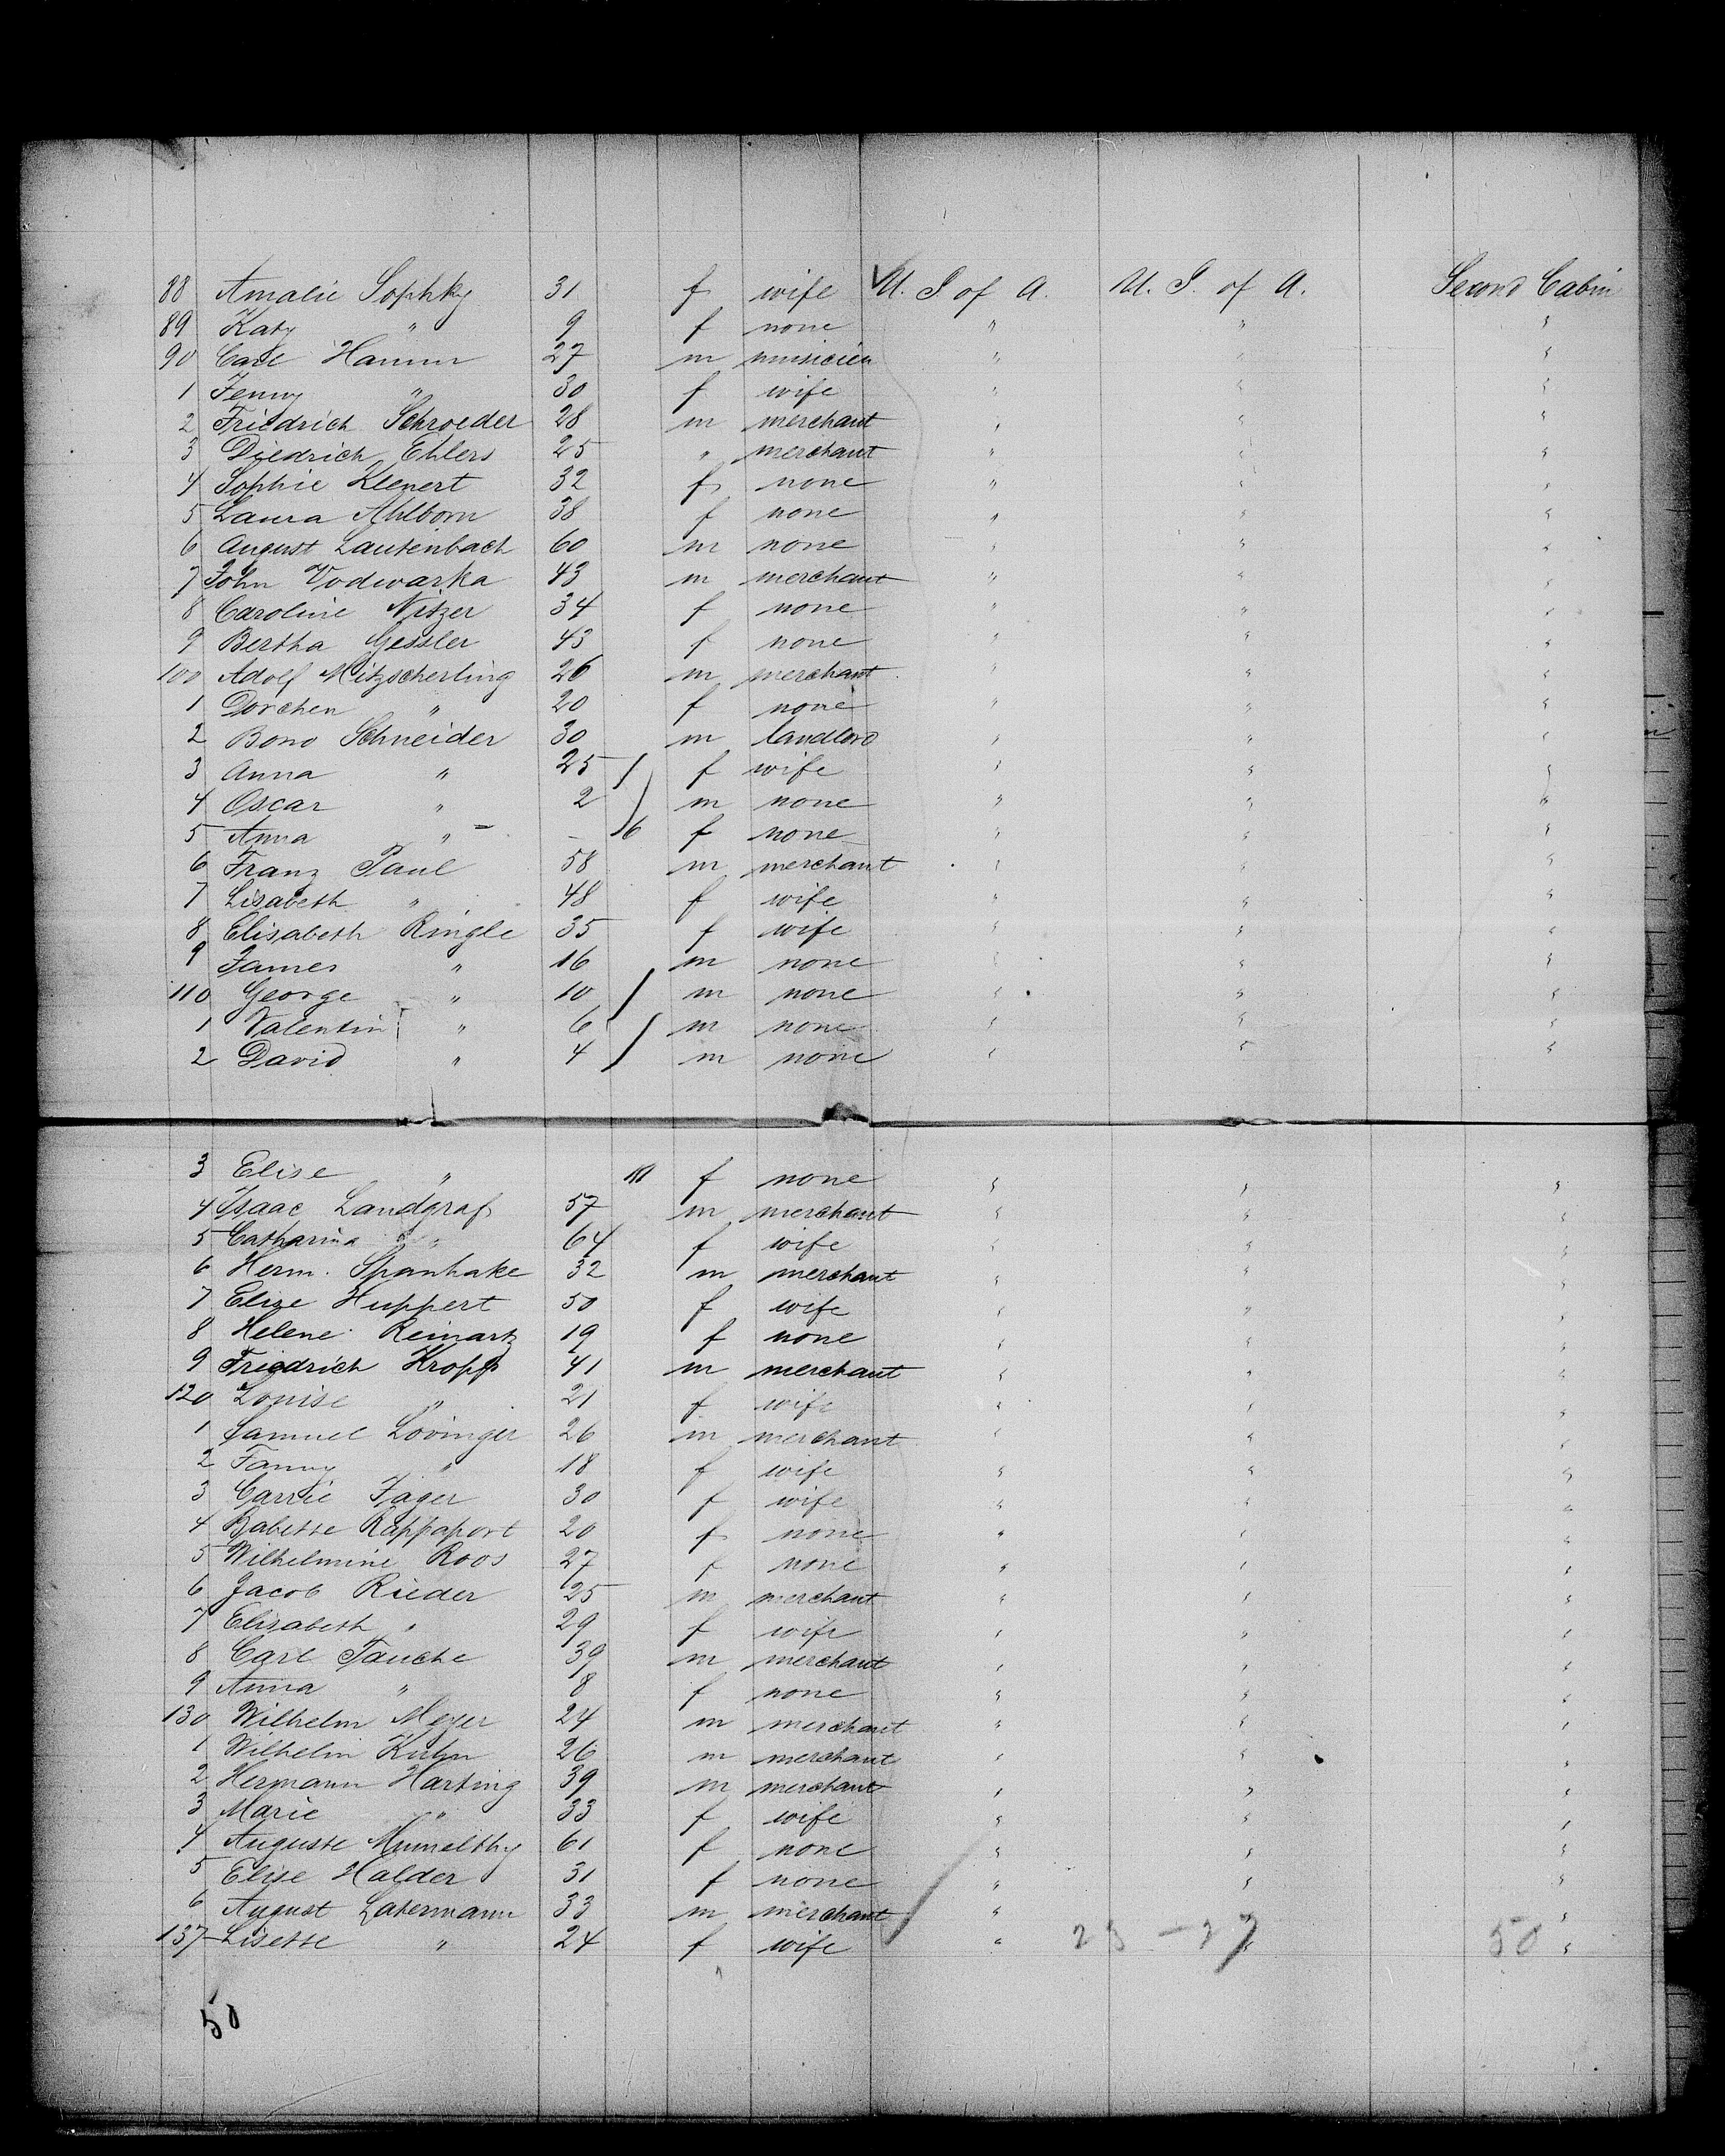 88 Amalie Sophky 31 f wife U. S. of A. U. S. of A. Second Cabin
89 Katy " 9 f none " " "
90 Carl Hamm 27 m musicien " " "
1 Jenny " 30 f wife " " "
2 Friedrich Schroeder 28 m merchant " " "
3 Diedrich Ehlers 25 " merchant " " "
4 Sophie Klenert 32 f none " " "
5 Laura Ahlborn 38 f none " " "
6 August Lautenbach 60 m none " " "
7 John Vodwarka 43 m merchant " " "
8 Caroline Nitzer 34 f none " " "
9 Bertha Gessler 43 f none " " "
100 Adolf Mitzscherling 26 m merchant " " "
1 Dorchen " 20 f none " " "
2 Bono Schneider 30 m landlord " " "
3 Anna " 25 f wife " " "
4 Oscar " 2 m none " " "
5 Anna " - 6 f none " " "
6 Franz Paul 58 m merchant " " "
7 Lisabeth " 48 f wife " " "
8 Elisabeth Ringle 35 f wife " " "
9 James " 16 m none " " "
110 George " 10 m none " " "
1 Valentin " 6 m none " " "
2 David " 4 m none " " "
3 Elise " 10 f none " " "
4 Isaac Landgraf 57 m merchant " " "
5 Catharina " 64 f wife " " "
6 Herm. Spanhake 32 m merchant " " "
7 Elize Huppert 50 f wife " " "
8 Helene Reinartz 19 f none " " "
9 Friedrich Kropp 41 m merchant " " "
120 Louise " 21 f wife " " "
1 Samuel Lövinger 26 m merchant " " "
2 Fanny " 18 f wife " " "
3 Carrie Jager 30 f wife " " "
4 Babette Rappaport 20 f none " " "
5 Wilhelmine Roos 27 f none " " "
6 Jacob Rieder 25 m merchant " " "
7 Elisabeth " 29 f wife " " "
8 Carl Tauche 39 m merchant " " "
9 Anna " 8 f none " " "
130 Wilhelm Meyer 24 m merchant " " "
1 Wilhelm Kuhn 26 m merchant " " "
2 Hermann Harting 39 m merchant " " "
3 Marie " 33 f wife " " "
4 Auguste 61 f none " " "
5 Elise Halder 31 f none " " "
6 August Latermann 33 m merchant " " "
137 Lisette " 24 f wife " 23 - 27 " 50 "
50